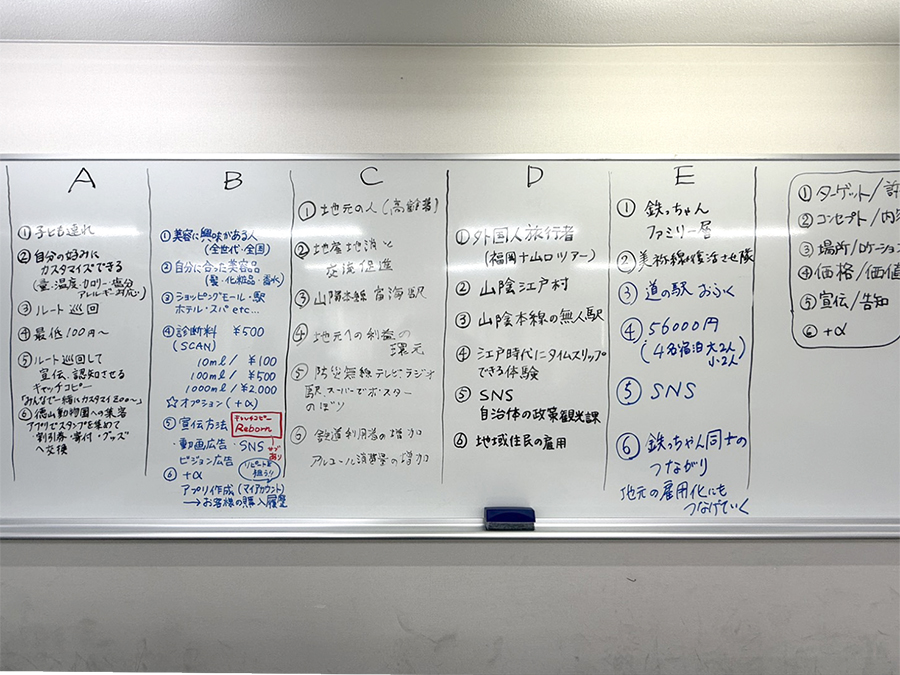 A
①子ども連れ
②自分の好みに
カスタマイズできる
(量・温度・カロリー・塩分
アレルギー対応)
③ルート巡回
④最低100円〜
⑤ルート巡回して
宣伝、認知させる
キャッチコピー
「みんなで一緒にカスタマイZOO〜」
⑥徳山動物園への集客
アプリでスタンプを集めて
・割引券・寄付・グッズ
へ交換
B
①美容に興味がある人
(全世代・全国)
②自分に合った美容品
(髪・化粧品・香水)
③ショッピングモール・駅
ホテル・スパ etc...
④診断料 ¥500
(SCAN)
10ml/¥100
100ml/¥500
1000ml/¥2,000
☆オプション(+α)
⑤宣伝方法
キャッチコピー
Reborn
・動画広告・SNS
サブあり
ビジョン広告
⑥+α
リピートを
狙う!!
アプリ作成(マイアカウント)
→お客様の購入履歴
C
①地元の人(高齢者)
②地産地消と
交流促進
③山陽本線 富海駅
④地元への利益の
還元
⑤防災無線・テレビ・ラジオ
駅、スーパーでポスター
のぼり
⑥鉄道利用者の増加
アルコール消費量の増加
D
①外国人旅行者
(福岡+山口ツアー)
②山陰江戸村
③山陰本線の無人駅
④江戸時代にタイムスリップ
できる体験
⑤SNS
自治体の政策観光課
⑥地域住民の雇用
E
①鉄っちゃん
ファミリー層
②美祢線を復活させ隊
③道の駅 おふく
④56000円
(4名宿泊 大2人
小2人
⑤SNS
⑥鉄っちゃん同士の
つながり
地元の雇用化にも
つなげていく
①ターゲット/許
②コンセプト/内容
③場所/ロケーション
④価格/価値
⑤宣伝/告知
⑥+α